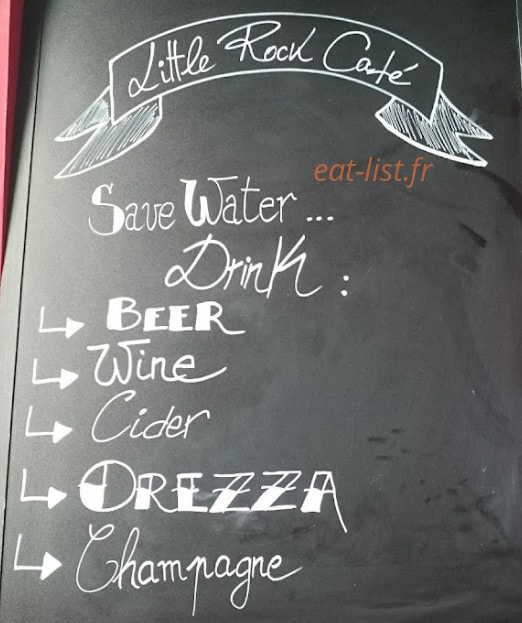 Little Rock Café
eat-list.fr
Save Water ...
Drink :
BEER
Wine
Cider
OREZZA
Champagne